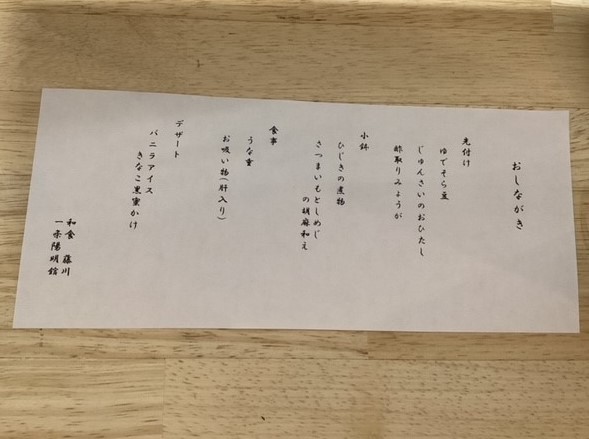 おしながき
先付け
ゆでそら豆
じゅんさいのおひたし
酢取りみょうが
小鉢
ひじきの煮物
さつまいもとしめじ
の胡麻和え
食事
うな重
お吸い物(肝入り)
デザート
バニラアイス
きなこ黒蜜かけ
和食 藤川
一乗陽明館